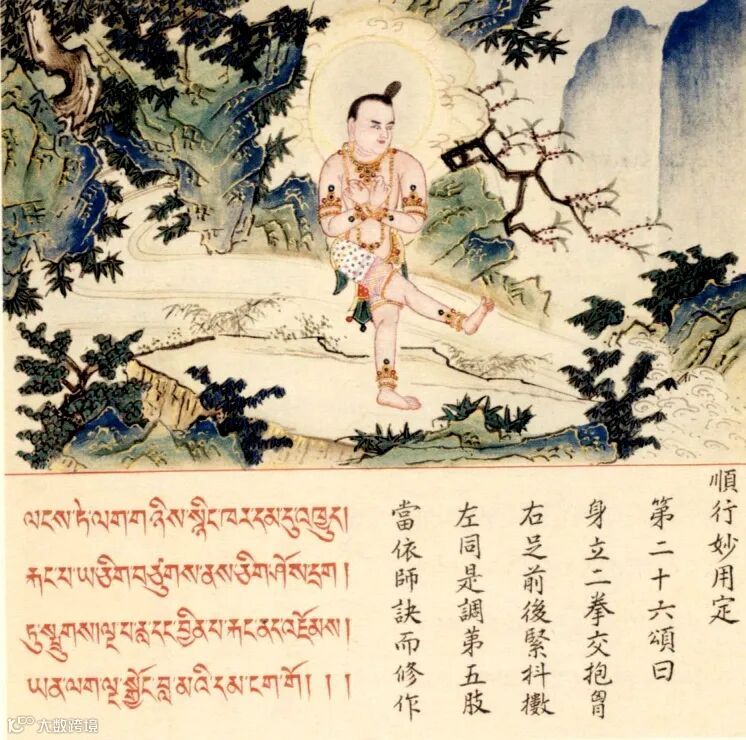 順行妙用定
第二十六頌曰
身立二拳交抱胷
右足前後緊抖擻
左同是調第五肢
當依師訣而修作
ལངས་ཏེ་ལག་གཉིས་སྙིང་ཁར་དམ་དུ་འཁྱུད།
རྐང་པ་ཡ་ཅིག་བཙུགས་ནས་ཅིག་ཤོས་དྲག །
ཏུ་སྤྲུགས། ལྔ་པ་བྱིན་པ་རྐང་ནད་འཇོམས།
ཡན་ལག་ལྔ་སྦྱོང་བླ་མའི་དམ་ངག་གོ། ། །
大数跨境